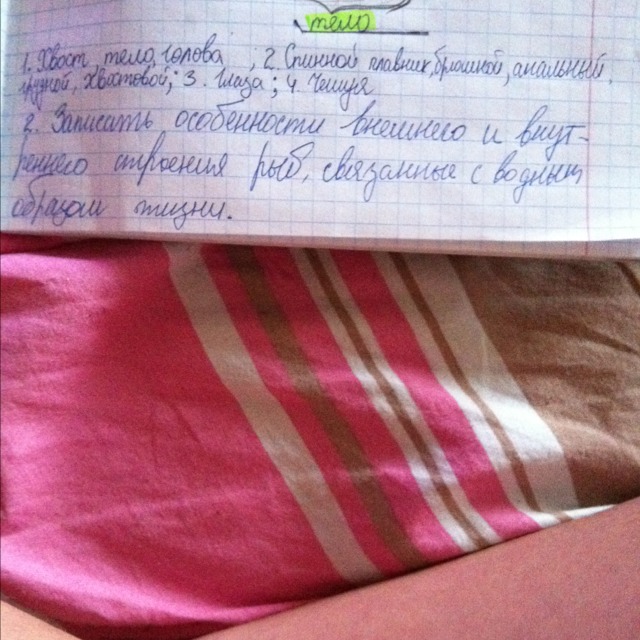 тело
1. Хвост, тело, голова ; 2. Спинной плавник, брюшной, анальный,
грудной, хвостовой; 3. Глаза; 4. Чешуя
2. Записать особенности внешнего и внут-
реннего строения рыб, связанные с водным
образом жизни.